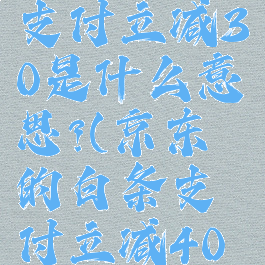 支付立减3
0是什么意
思?(京东
的白条支
付立减40